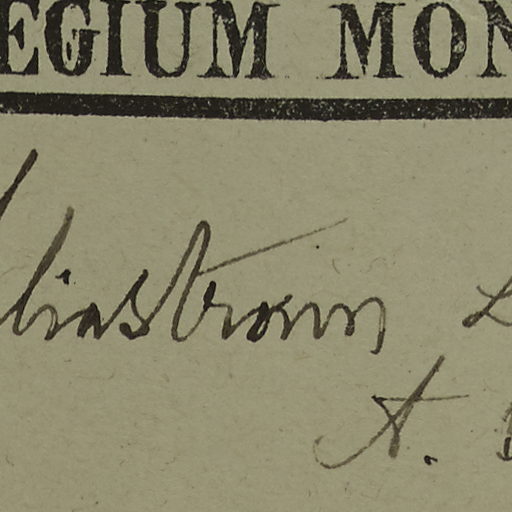 EGIUM MON
liastrum
A.